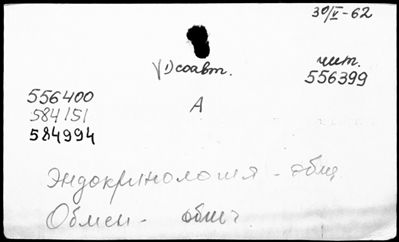 30/V-62
√1) соавт.
чит.
556399
556400
584151
584994
А
Эндокринология - общ
Обмен - общ